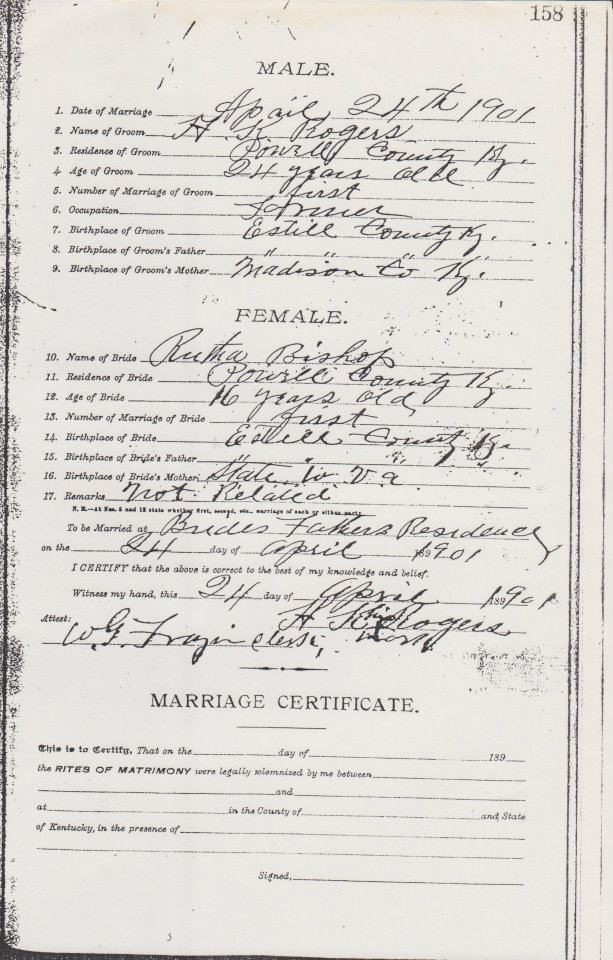 158
MALE.
1. Date of Marriage April 24th 1901
2. Name of Groom H K Rogers
3. Residence of Groom Powell County Ky.
4 Age of Groom 24 years old
5. Number of Marriage of Groom first
6. Occupation Farmer
7. Birthplace of Groom Estill County Ky.
8. Birthplace of Groom's Father " " "
9. Birthplace of Groom's Mother Madison Co Ky.
FEMALE.
10. Name of Bride Rutha Bishop
11. Residence of Bride Powell County Ky
12. Age of Bride 16 years old
13. Number of Marriage of Bride first
14. Birthplace of Bride Estill County Ky.
15. Birthplace of Bride's Father " " "
16. Birthplace of Bride's Mother State W Va
17. Remarks not Related
N. B.—At Nos. 5 and 13 state whether first, second, etc., marriage of each or either party.
To be Married at Brides Fathers Residence
on the 24 day of April 1901
I CERTIFY that the above is correct to the best of my knowledge and belief.
Witness my hand, this 24 day of April 1901
H K his Rogers
Attest: W G Frazier clerk, mark
MARRIAGE CERTIFICATE.
This is to Certify, That on the day of 189
the RITES OF MATRIMONY were legally solemnized by me between
and
at in the County of and, State
of Kentucky, in the presence of
Signed,